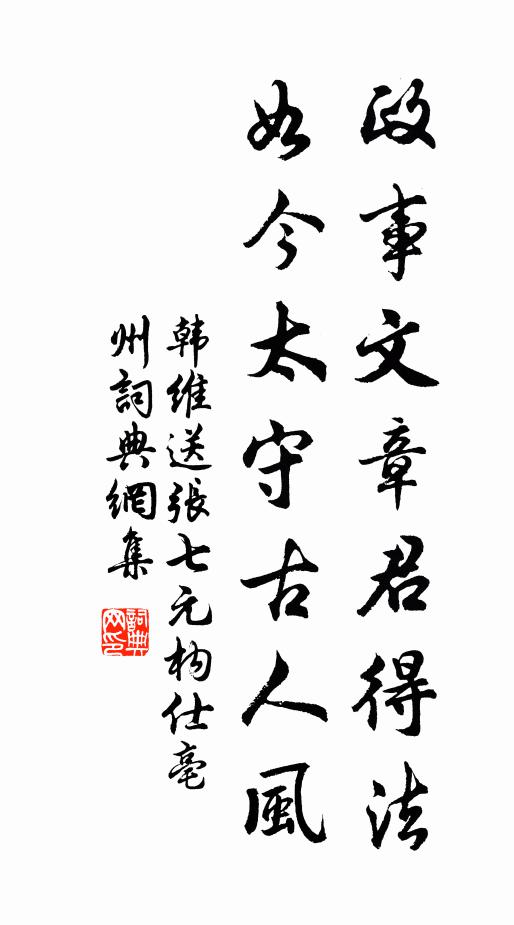 政事文章君得法
如今太守古人風
韩維送張七元构仕亳
州詞典網集
詞典网印